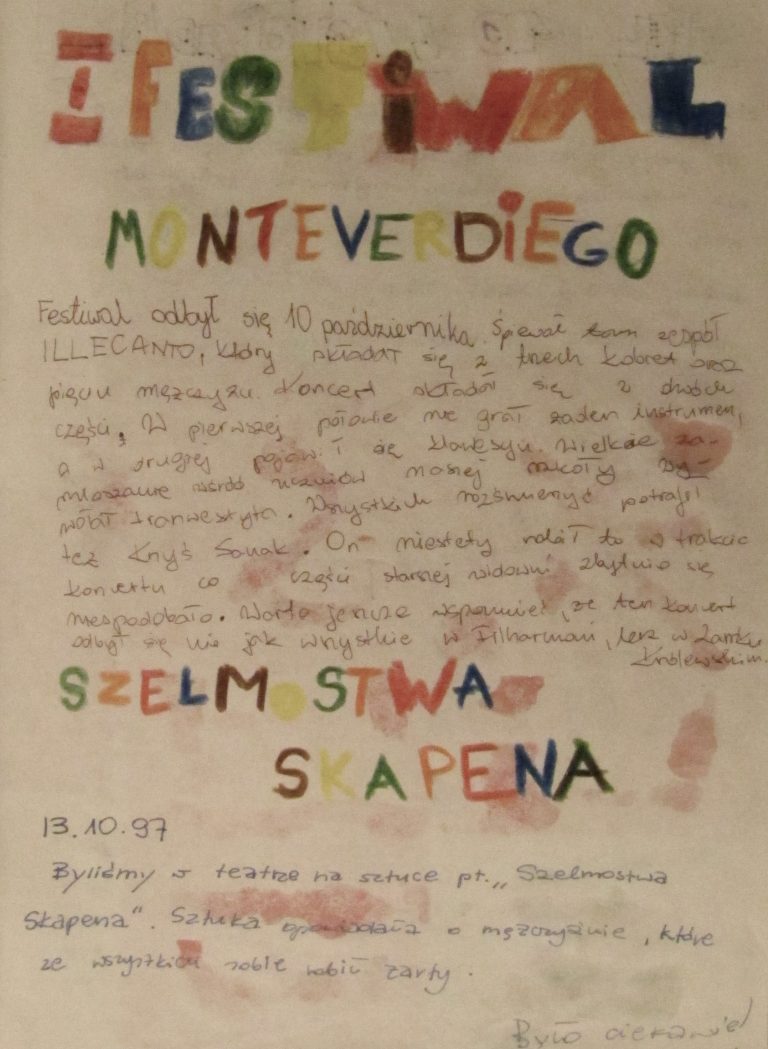 I FESTIWAL
MONTEVERDIEGO
Festiwal odbył się 10 października. Śpiewał tam zespół
ILLECANTO, który składał się z trzech kobiet oraz
pięciu mężczyzn. Koncert składał się z dwóch
części. W pierwszej połowie nie grał żaden instrument,
a w drugiej pojawił się klawesyn. Wielkie za-
mieszanie wśród uczniów naszej szkoły zy-
wołał tranwestyta. Wszystkich rozśmieszyć potrafił
też Krzyś Sanak. On niestety robił to w trakcie
koncertu co części starszej widowni zbytnio się
niespodobało. Warto jeszcze wspomnieć, że ten koncert
odbył się nie jak wszystkie w Filharmonii, lecz w Zamku
Królewskim.
SZELMOSTWA
SKAPENA
13.10.97
Byliśmy w teatrze na sztuce pt. „Szelmostwa
Skapena". Sztuka opowiadała o mężczyźnie, które
ze wszystkich sobie robił żarty.
Było ciekawie!